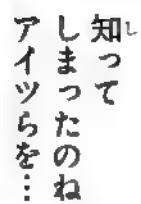 知って
しまったのね
アイツらを…